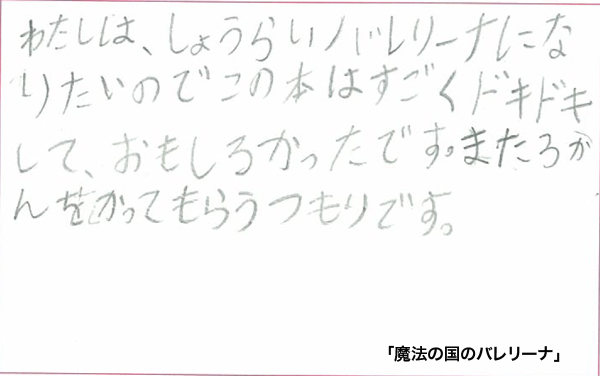 わたしは、しょうらいバレリーナにな
りたいのでこの本はすごくドキドキ
して、おもしろかったです。また3か
んをかってもらうつもりです。
「魔法の国のバレリーナ」